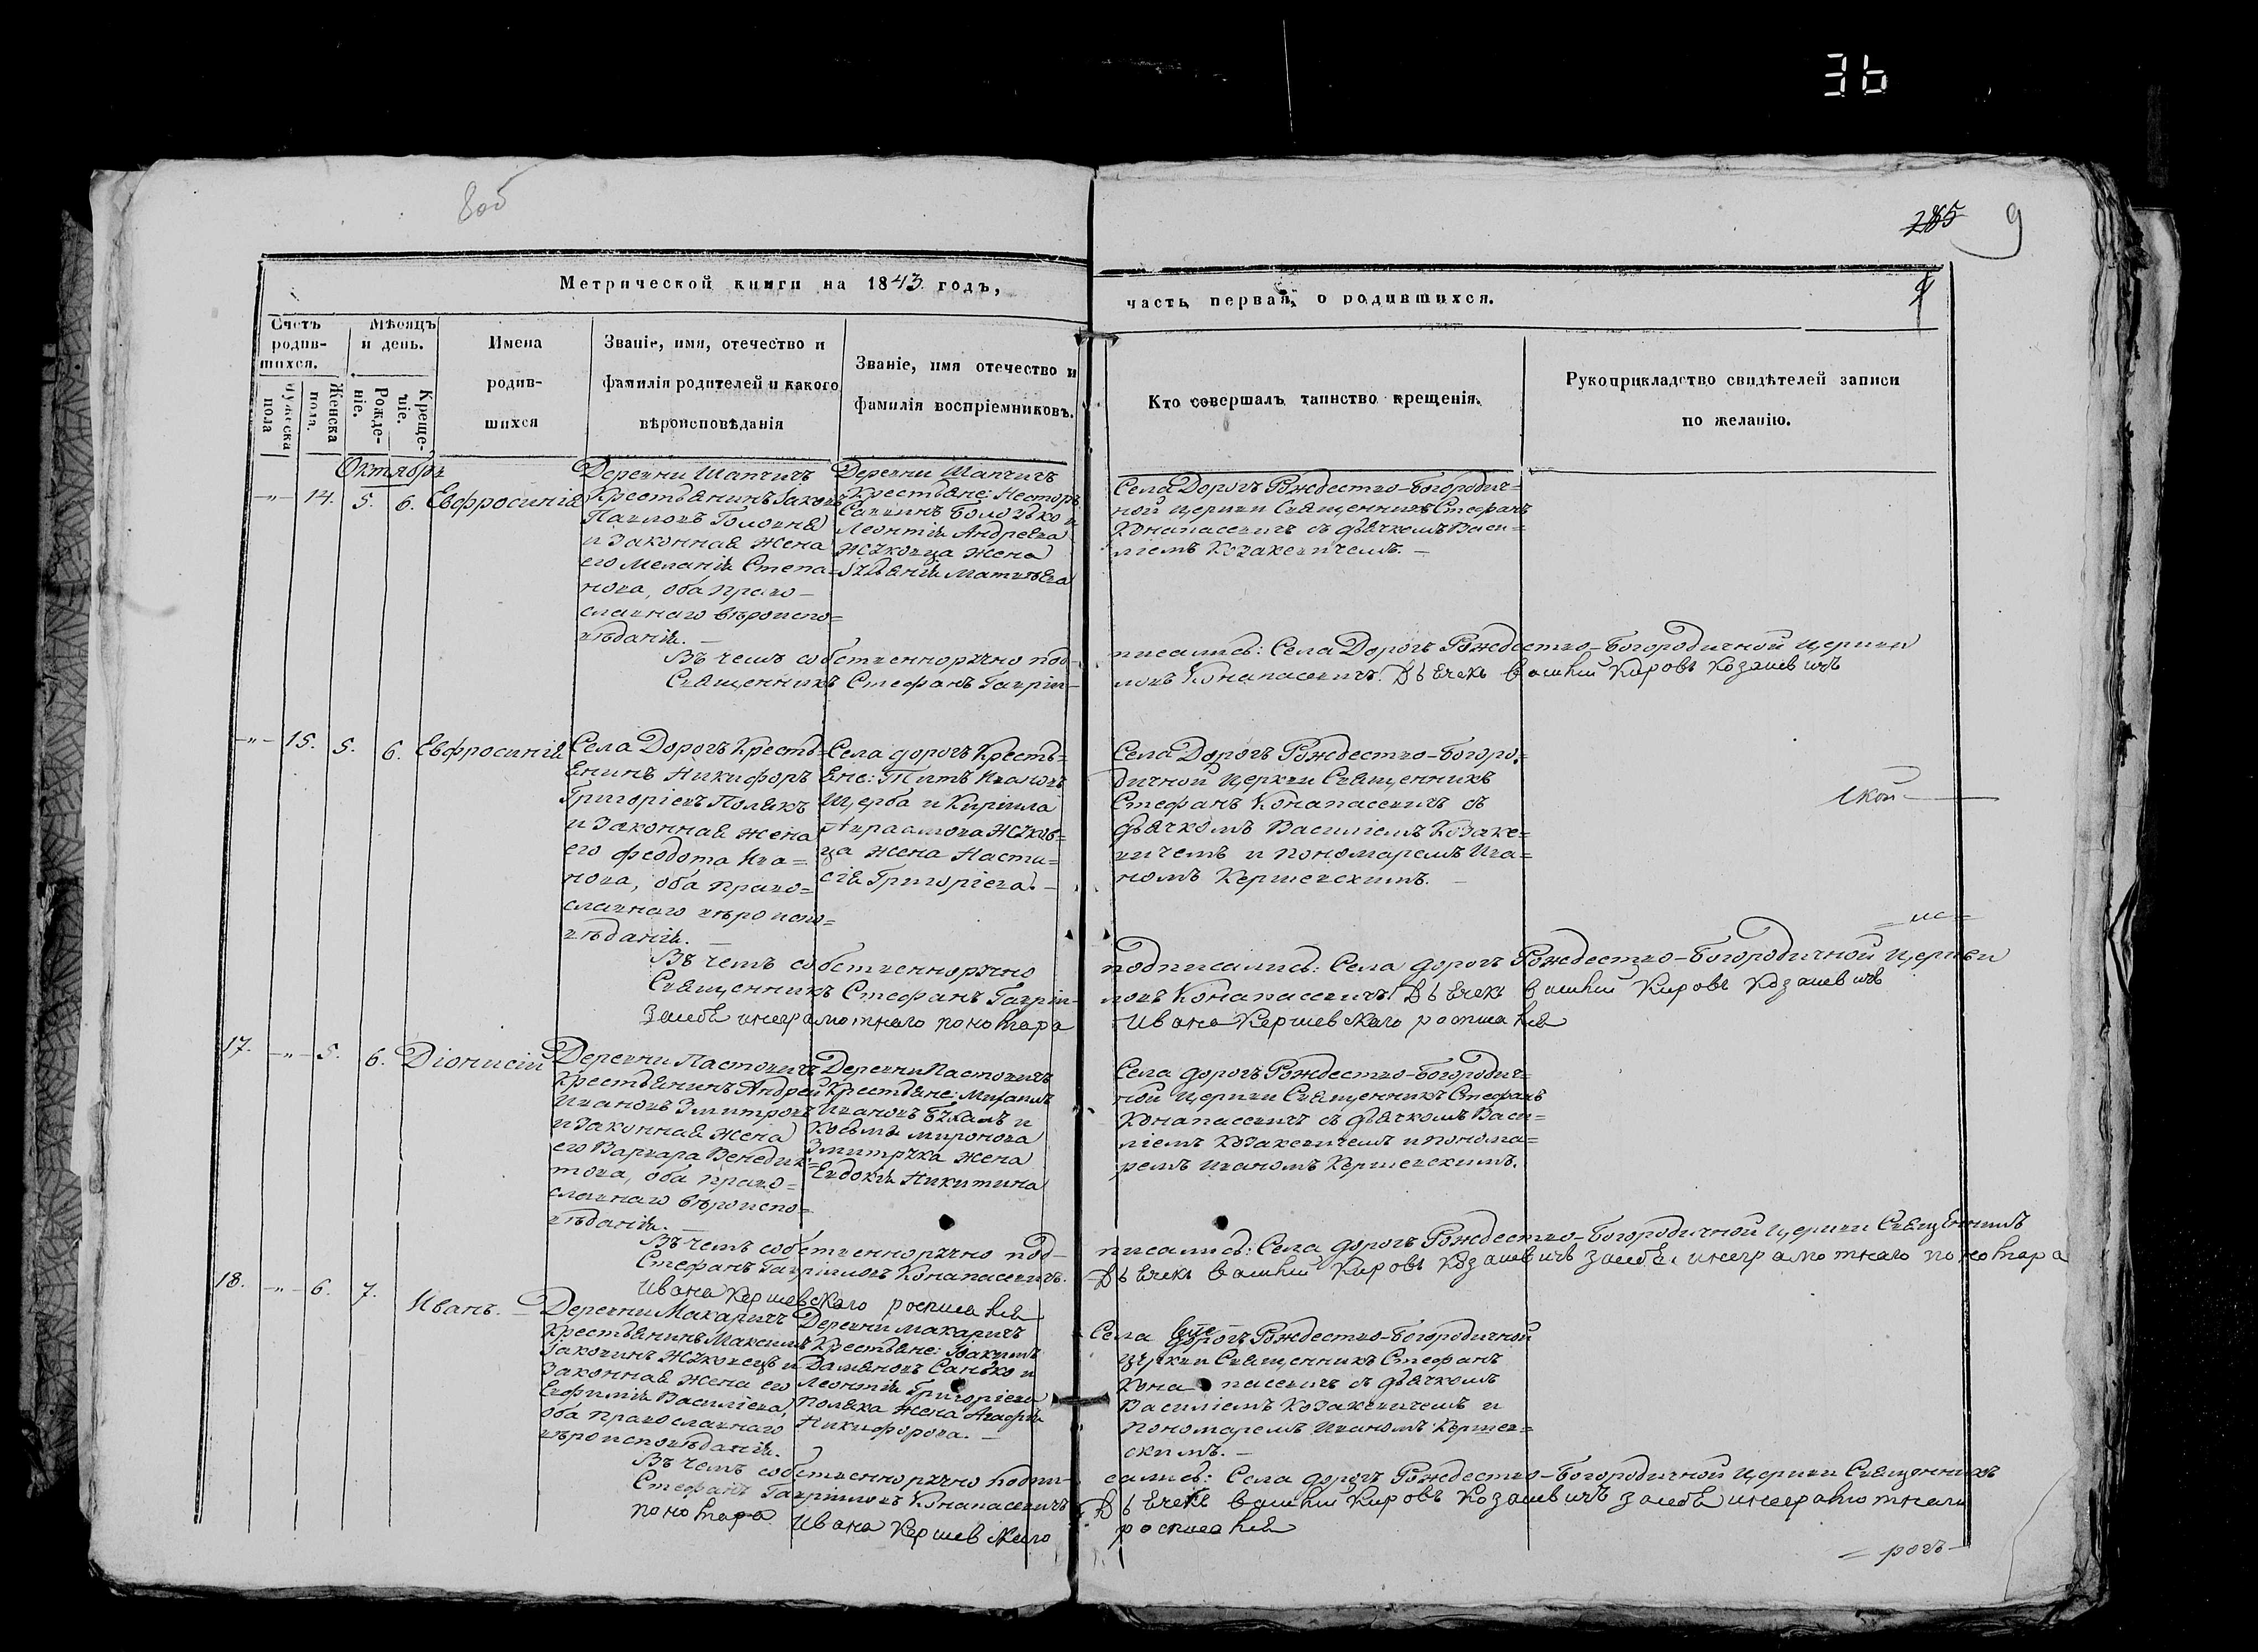 36
8 об
285
9
Метрической книги на 1843 годъ,
часть первая, о родившихся.
Счетъ родив-
шихся.
Мѣсяцъ
и день.
Мужеска пола
Женска пола.
Рожде-
ніе.
Креще-
ніе.
Имена
родив-
шихся
Званіе, имя, отечество и
фамилія родителей и какого
вѣроисповѣданія
Званіе, имя отечество и
фамилія воспріемниковъ.
Кто совершалъ таинство крещенія.
Рукоприкладство свидѣтелей записи
по желанію.
Октября
-"- 14. 5. 6. Евфросинія
Деревни Шапчичъ
Крестьянинъ Іаковъ
Павловъ Головня
и законная жена
его Меланія Степа-
нова, оба право-
славнаго вѣроиспо=
вѣданія. —
Деревни Шапчичъ
Крестьяне: Несторъ
Саввинъ и
Леонтія Андреева
Жуковца жена
Матвѣева
Села Дорогъ Рождество-Богородич=
ной Церкви Священникъ Стефанъ
Конапасевичъ съ дьячкомъ Васи=
ліемъ Козакевичемъ. —
Въ чемъ собственноручно под-
писались: Села Дорогъ Рождество-Богородичной Церкви
Священникъ Стефанъ Гаврiи-
ловъ Конапасевичъ. Козакевичъ
-"- 15. 5. 6. Евфросинія
Села Дорогъ Кресть=
янинъ Никифоръ
Григоріевъ Полякъ
и законная жена
его Феодота Ива=
нова, оба право=
славнаго вѣроиспо=
вѣданія. —
Села Дорогъ Кресть=
яне: Титъ Ивановъ
Щерба и Кирилла
Авраамова Жуков=
ца жена Наста=
сія Григоріева. —
Села Дорогъ Рождество-Богоро=
дичной Церкви Священникъ
Стефанъ Конапасевичъ съ
дьячкомъ Василіемъ Козаке=
вичемъ и пономаремъ Ива=
номъ Кершевскимъ. —
Въ чемъ собственноручно
подписались: Села Дорогъ Рождество-Богородичной Церкви
Священникъ Стефанъ Гаврiи-
ловъ Конапасевичъ.
Ивана Кершевскаго
17. -"- 5. 6. Діонисій
Деревни Пастовичъ
Крестьянинъ Андрей
Ивановъ
и законная жена
его Варвара Венедик=
това, оба право=
славнаго вѣроиспо=
вѣданія. —
Деревни Пастовичъ
Крестьяне: Михаилъ
Ивановъ и
Косьмы Миронова
жена
Евдокія Никитина
Села Дорогъ Рождество-Богородич=
ной Церкви Священникъ Стефанъ
Конапасевичъ съ дьячкомъ Васи=
ліемъ Козакевичемъ и понома=
ремъ Иваномъ Кершевскимъ.
Въ чемъ собственноручно под-
писались: Села Дорогъ Рождество-Богородичной Церкви Священникъ
Стефанъ Гавріиловъ Конапасевичъ.
Ивана Кершевскаго
18. -"- 6. 7. Иванъ. —
Деревни Макаричъ
Крестьянинъ Максимъ
Іаковинъ Жуковецъ и
законная жена его
Евфимія Василіева,
оба православнаго
вѣроисповѣданія.
Деревни Макаричъ
Крестьяне: Іоакимъ
Даміановъ Санько и
Леонтія Григоріева
Поляка жена Агафія
Никифорова. —
Села Дорогъ Рождество-Богородичной
Церкви Священникъ Стефанъ
Конапасевичъ съ дьячкомъ
Василіемъ Козакевичемъ и
Пономаремъ Иваномъ Кершев=
скимъ. —
Въ чемъ собственноручно подпи-
сались: Села Дорогъ Рождество-Богородичной Церкви Священникъ
Стефанъ Гавріиловъ Конапасевичъ
Ивана Кершевскаго
= рогъ —